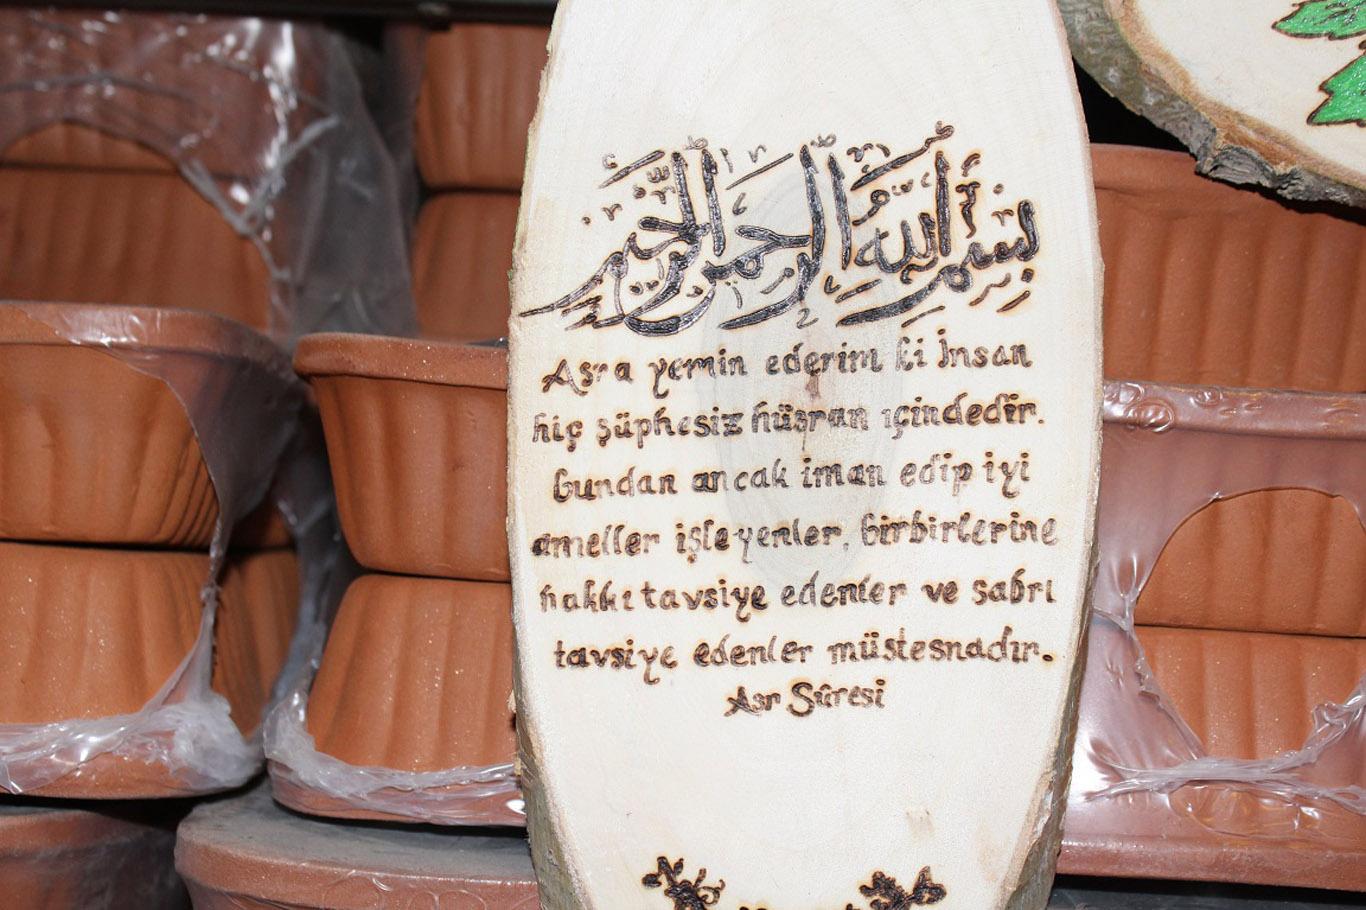 بسم الله الرحمن الرحيم
Asra yemin ederim ki İnsan
hiç şüphesiz hüsran içindedir.
bundan ancak iman edip iyi
ameller işleyenler, birbirlerine
hakkı tavsiye edenler ve sabrı
tavsiye edenler müstesnadır.
Asr Sûresi